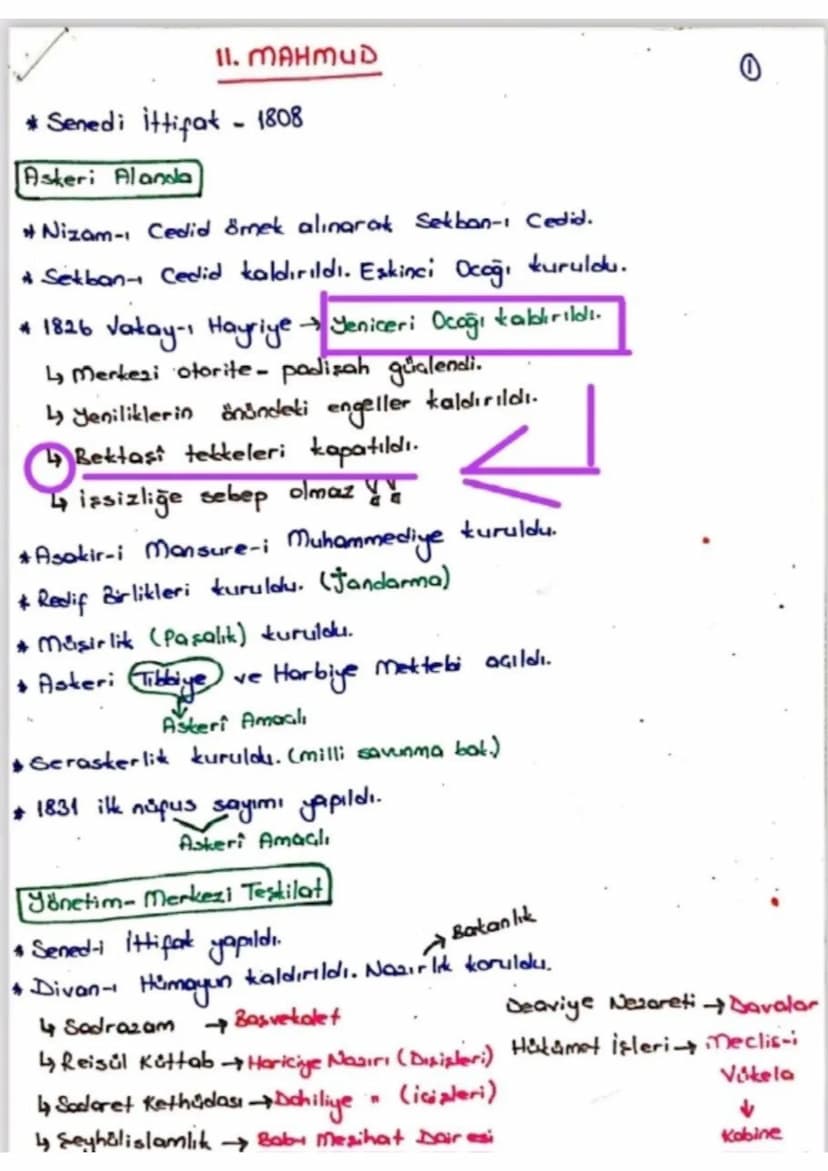 II. MAHMUD
1
* Senedi İttifak - 1808
Askeri Alanda
* Nizam-ı Cedid örnek alınarak Sekban-ı Cedid.
* Sekban-ı Cedid kaldırıldı. Eşkinci Ocağı kuruldu.
* 1826 Vakay-ı Hayriye → Yeniçeri Ocağı kaldırıldı.
↳ Merkezi otorite - padişah güçlendi.
↳ Yeniliklerin önündeki engeller kaldırıldı.
↳ Bektaşî tekkeleri kapatıldı.
↳ işsizliğe sebep olmaz !!
* Asakir-i Mansure-i Muhammediye kuruldu.
* Redif Birlikleri kuruldu. (Jandarma)
* Müşirlik (Paşalık) kuruldu.
* Askeri Tıbbiye ve Harbiye Mektebi açıldı.
Askerî Amaçlı
* Seraskerlik kuruldu. (milli savunma bak.)
* 1831 ilk nüfus sayımı yapıldı.
Askerî Amaçlı
Yönetim - Merkezi Teşkilat
* Sened-i İttifak yapıldı.
→ Bakanlık
* Divan-ı Hümayun kaldırıldı. Nazırlık koruldu.
↳ Sadrazam → Başvekalet
↳ Reisül Küttab → Hariciye Nazırı (Dışişleri)
↳ Sadaret Kethüdası → Dahiliye " (içişleri)
↳ Şeyhülislamlık → Bab-ı Meşihat Dairesi
Deaviye Nezareti → Davalar
Hükümet İşleri → Meclis-i
Vükela
↓
Kabine